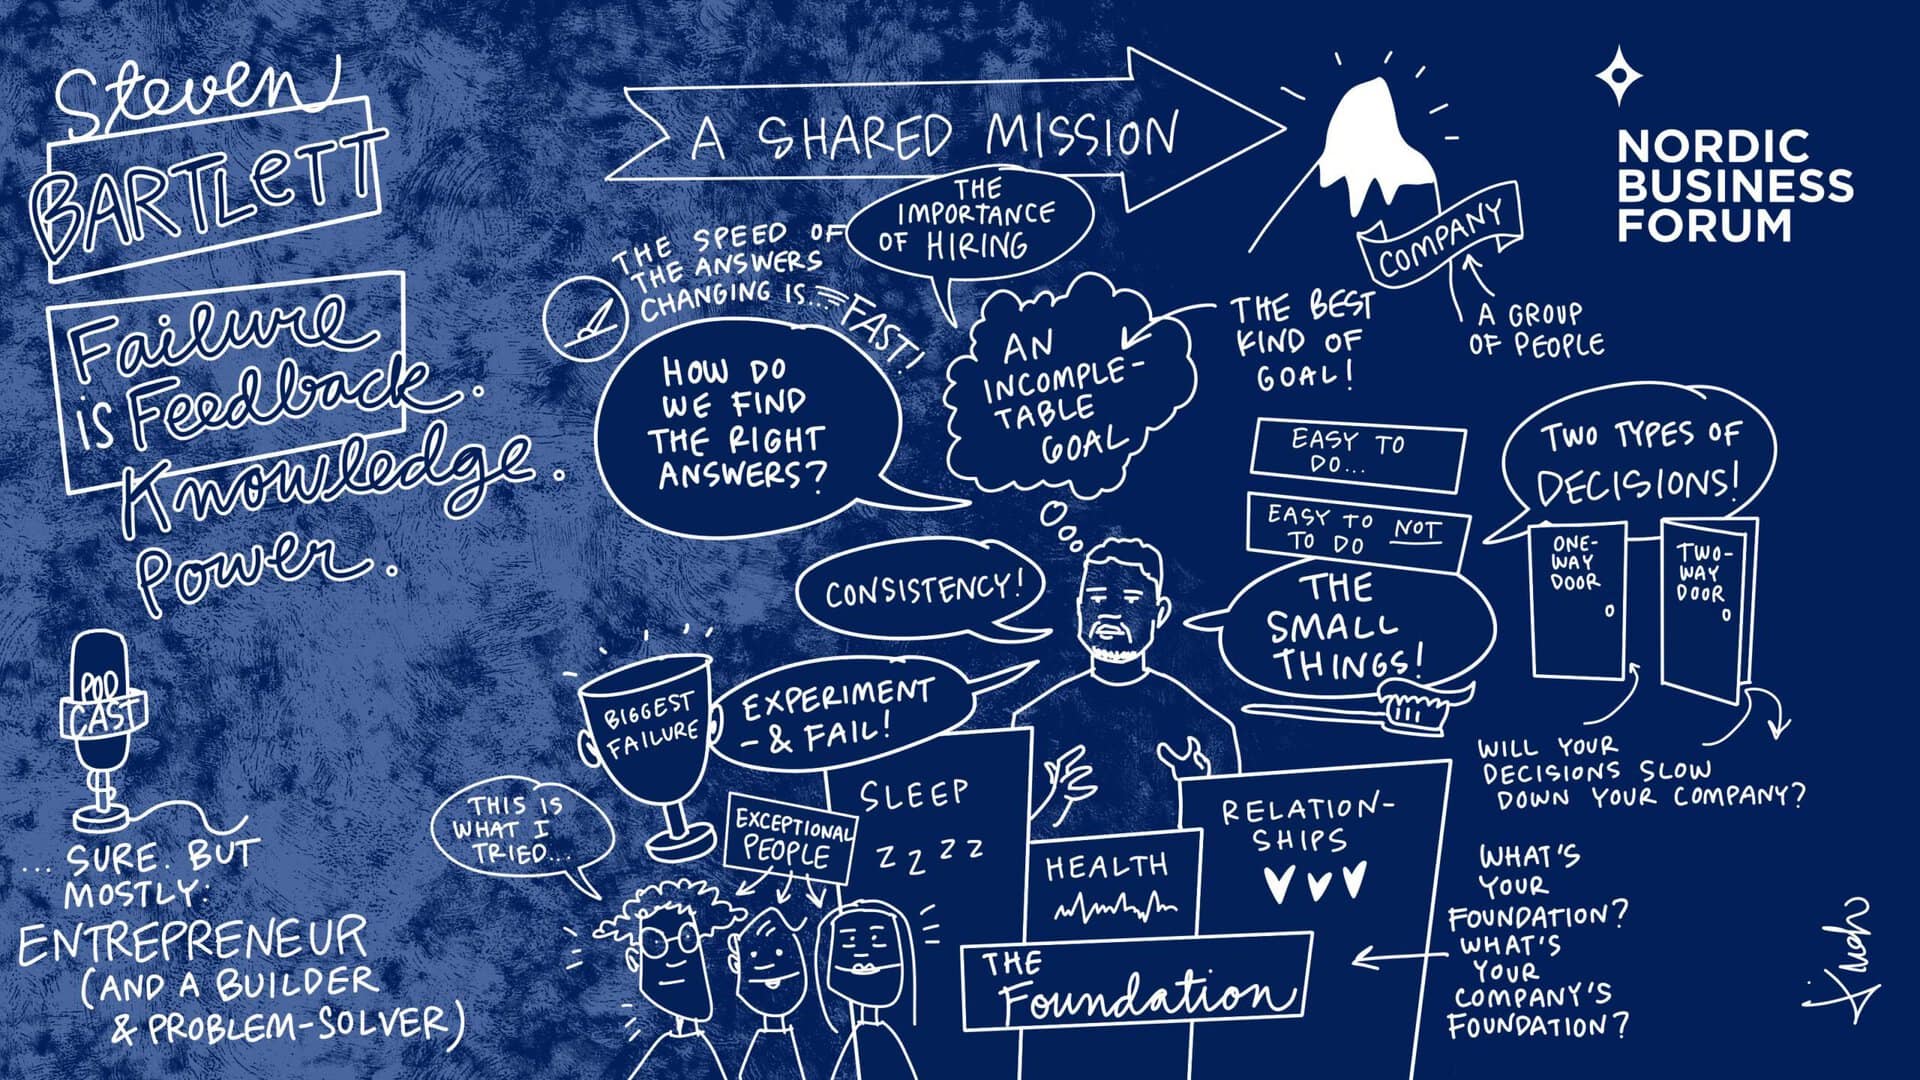 Steven
BARTLETT
Failure
is Feedback.
Knowledge.
Power.
POD
CAST
... SURE. BUT
MOSTLY:
ENTREPRENEUR
(AND A BUILDER
& PROBLEM-SOLVER)
A SHARED MISSION
THE
IMPORTANCE
OF HIRING
THE SPEED OF
THE ANSWERS
CHANGING IS...
FAST!
HOW DO
WE FIND
THE RIGHT
ANSWERS?
AN
INCOMPLE-
TABLE
GOAL
THE BEST
KIND OF
GOAL!
COMPANY
A GROUP
OF PEOPLE
NORDIC
BUSINESS
FORUM
EASY TO
DO...
EASY TO NOT
TO DO
THE
SMALL
THINGS!
TWO TYPES OF
DECISIONS!
ONE-
WAY
DOOR
TWO-
WAY
DOOR
WILL YOUR
DECISIONS SLOW
DOWN YOUR COMPANY?
CONSISTENCY!
EXPERIMENT
- & FAIL!
BIGGEST
FAILURE
THIS IS
WHAT I
TRIED...
EXCEPTIONAL
PEOPLE
SLEEP
Z Z Z Z
HEALTH
RELATION-
SHIPS
THE
Foundation
WHAT'S
YOUR
FOUNDATION?
WHAT'S
YOUR
COMPANY'S
FOUNDATION?